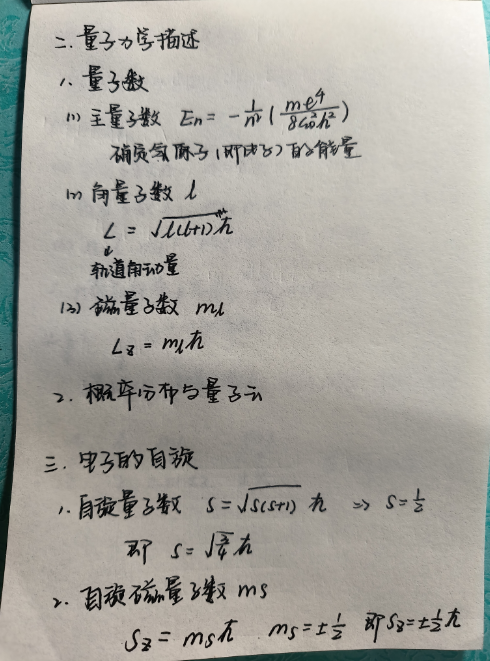 二.量子力学描述
1、量子数
(1) 主量子数 En = -1/n² (me⁴/8ε₀²h²)
确定氢原子(即电子)的能量
(2) 角量子数 l
L = √l(l+1) ħ
↓
轨道角动量
(3) 磁量子数 ml
Lz = mlħ
2. 概率分布与量子云
三.电子的自旋
1、自旋量子数 S=√S(S+1) ħ ⇒ S=1/2
即 S=√3/4 ħ
2. 自旋磁量子数 ms
Sz = msħ ms=±1/2 即Sz=±1/2ħ